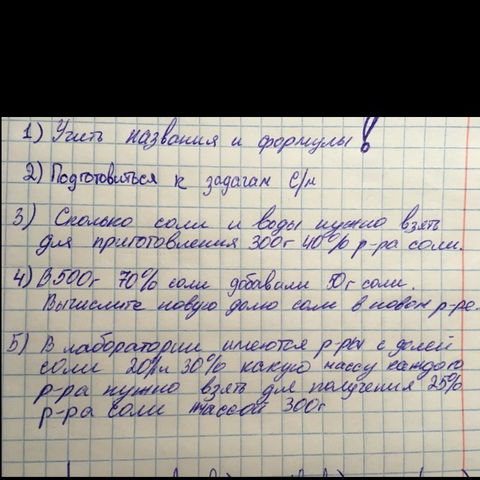 1) Учить названия и формулы!
2) Подготовиться к задачам С/м
3) Сколько соли и воды нужно взять
для приготовления 300г 40% р-ра соли.
4) В 500г 70% соли добавили 50г соли.
Вычислите новую долю соли в новом р-ре.
5) В лаборатории имеются р-ры с долей
соли 20%и 30% какую массу каждого
р-ра нужно взять для получения 25%
р-ра соли массой 300г